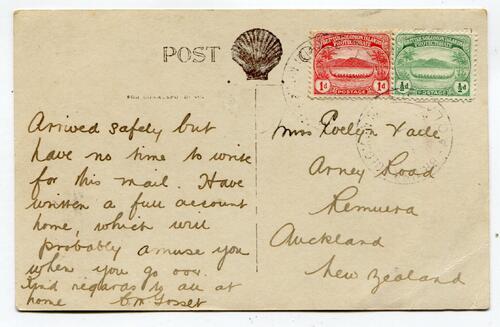 POST
BRITISH SOLOMON ISLANDS
PROTECTORATE
1d 1d
POSTAGE
BRITISH SOLOMON ISLANDS
PROTECTORATE
½d ½d
POSTAGE
FOR
Arrived safely but
have no time to write
for this mail. Have
written a full account
home, which will
probably amuse you
when you go over.
Kind regards to all at
home
Miss Evelyn Vaile
Arney Road
Remuera
Auckland
New Zealand